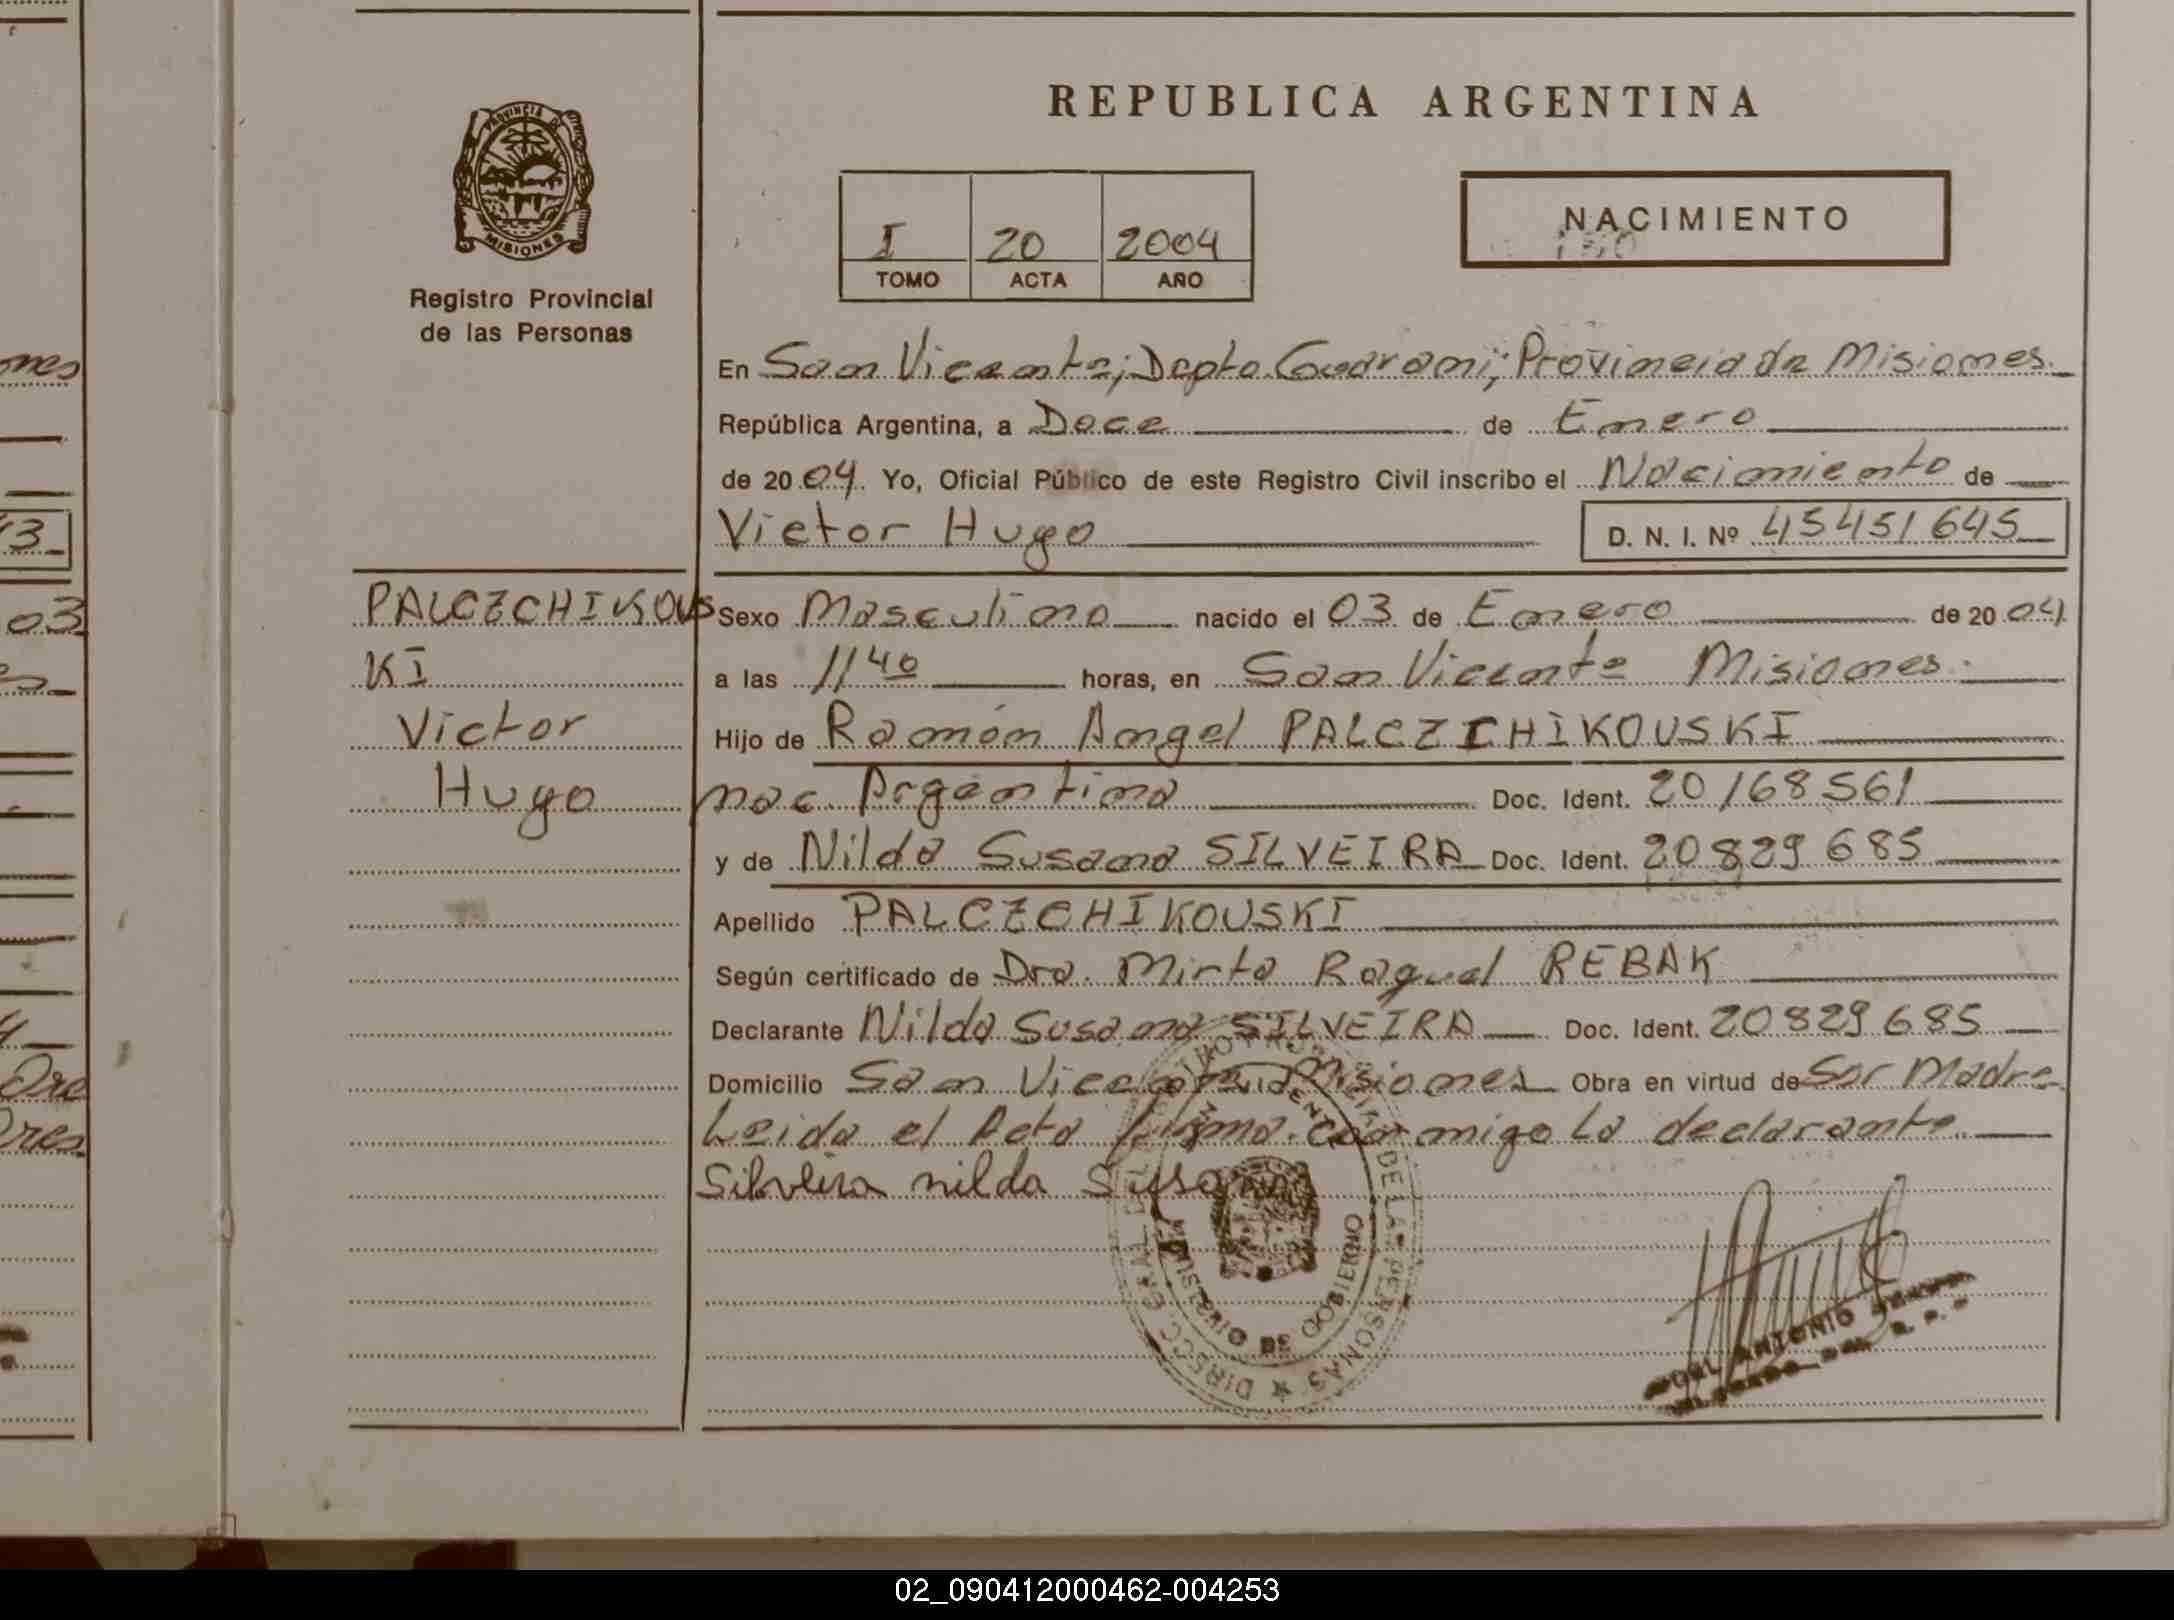 REPUBLICA ARGENTINA
PROVINCIA DE
MISIONES
Registro Provincial
de las Personas
I 20 2004
TOMO ACTA AÑO
NACIMIENTO
En San Vicente; Depto. Guarani; Provincia de Misiones.
República Argentina, a Doce de Enero
de 2004. Yo, Oficial Público de este Registro Civil inscribo el Nacimiento de
Victor Hugo D. N. I. Nº 45451645
PALCZCHIKOUS
KI
Victor
Hugo
Sexo Masculino nacido el 03 de Enero de 2004
a las 11 40 horas, en San Vicente Misiones.
Hijo de Ramón Angel PALCZCHIKOUSKI
nac. Argentina Doc. Ident. 20168561
y de Nilda Susana SILVEIRA Doc. Ident. 20829685
Apellido PALCZCHIKOUSKI
Según certificado de Dra. Mirta Raquel REBAK
Declarante Nilda Susana SILVEIRA Doc. Ident. 20829685
Domicilio San Vicente Misiones Obra en virtud de Ser Madre
Leida el Acta firma conmigo la declarante
Silveira nilda Susana
DE LAS PERSONAS
DE GOBIERNO
ANTONIO
03
Ores
02_090412000462-004253